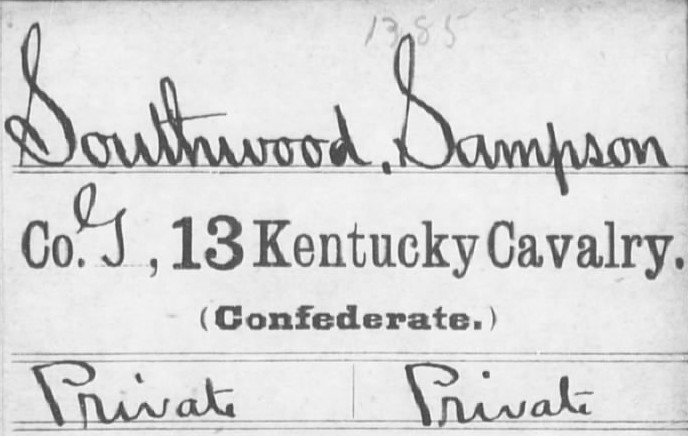 1385
Southwood, Sampson
Co. G, 13 Kentucky Cavalry.
(Confederate.)
Private Private